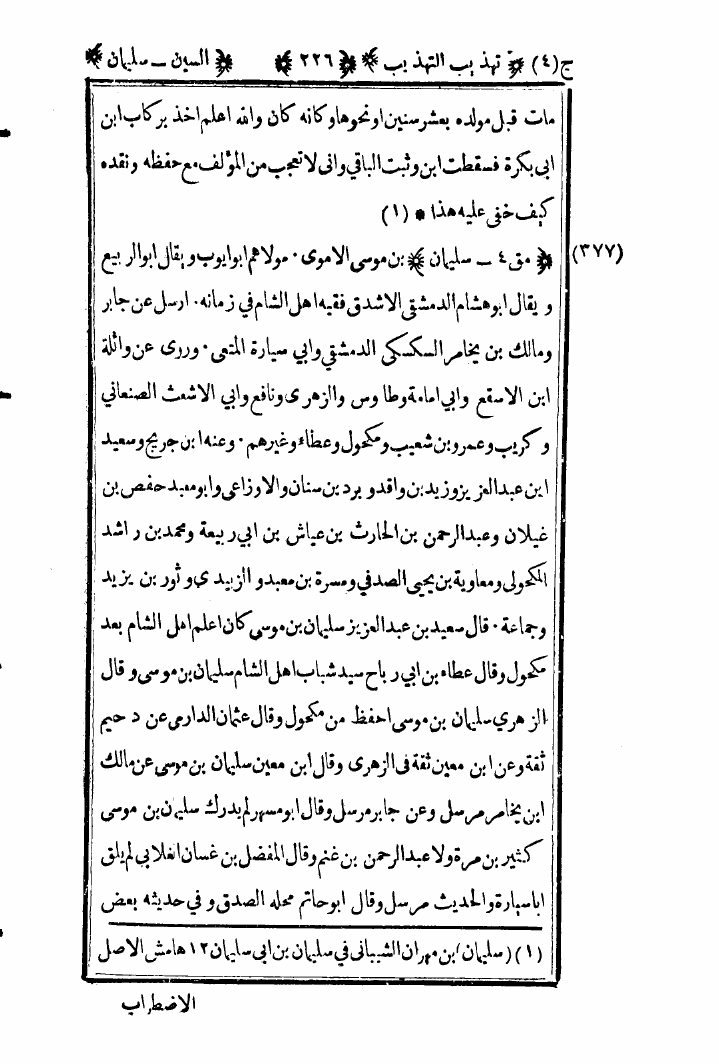 ج(٤) ﴿ تهذيب التهذيب ﴾ ﴿ ٢٢٦ ﴾ ﴿ السين ـ سليمان ﴾
مات قبل مولده بعشر سنين او نحوها وكانه كان والله اعلم اخذ بركاب ابن
ابى بكرة فسقطت ابن وثبت الباقي وانى لاتعجب من المؤلف مع حفظه ونقده
كيف خفى عليه هذا * (١)
(٣٧٧) ﴿ مق ٤ ـ سليمان ﴾ بن موسى الاموى · مولاهم ابو ايوب ويقال ابو الربيع
ويقال ابو هشام الدمشقي الاشدق فقيه اهل الشام في زمانه · ارسل عن جابر
ومالك بن يخامر السكسكي الدمشقي وابي سيارة المتعى · وروى عن واثلة
ابن الاسقع وابي امامة وطاوس والزهرى ونافع وابي الاشعث الصنعاني
وكريب وعمرو بن شعيب ومكحول وعطاء وغيرهم · وعنه ابن جريج وسعيد
ابن عبد العزيز وزيد بن واقد وبرد بن سنان والاوزاعى وابو معيد حفص بن
غيلان وعبد الرحمن بن الحارث بن عياش بن ابي ربيعة ومحمد بن راشد
المكحولى ومعاوية بن يحيى الصدفي ومسرة بن معبد والزبيدي وثور بن يزيد
وجماعة · قال سعيد بن عبد العزيز سليمان بن موسى كان اعلم اهل الشام بعد
مكحول وقال عطاء بن ابي رباح سيد شباب اهل الشام سليمان بن موسى وقال
الزهري سليمان بن موسى احفظ من مكحول وقال عثمان الدارمي عن دحيم
ثقة وعن ابن معين ثقة فى الزهرى وقال ابن معين سليمان بن موسى عن مالك
ابن يخامر مرسل وعن جابر مرسل وقال ابو مسهر لم يدرك سليمان بن موسى
كثير بن مرة ولا عبد الرحمن بن غنم وقال المفضل بن غسان الغلابي لم يلق
ابا سيارة والحديث مرسل وقال ابو حاتم محله الصدق وفي حديثه بعض
(١) (سليمان) بن مهران الشيبانى في سليمان بن ابى سليمان ١٢ هامش الاصل
الاضطراب